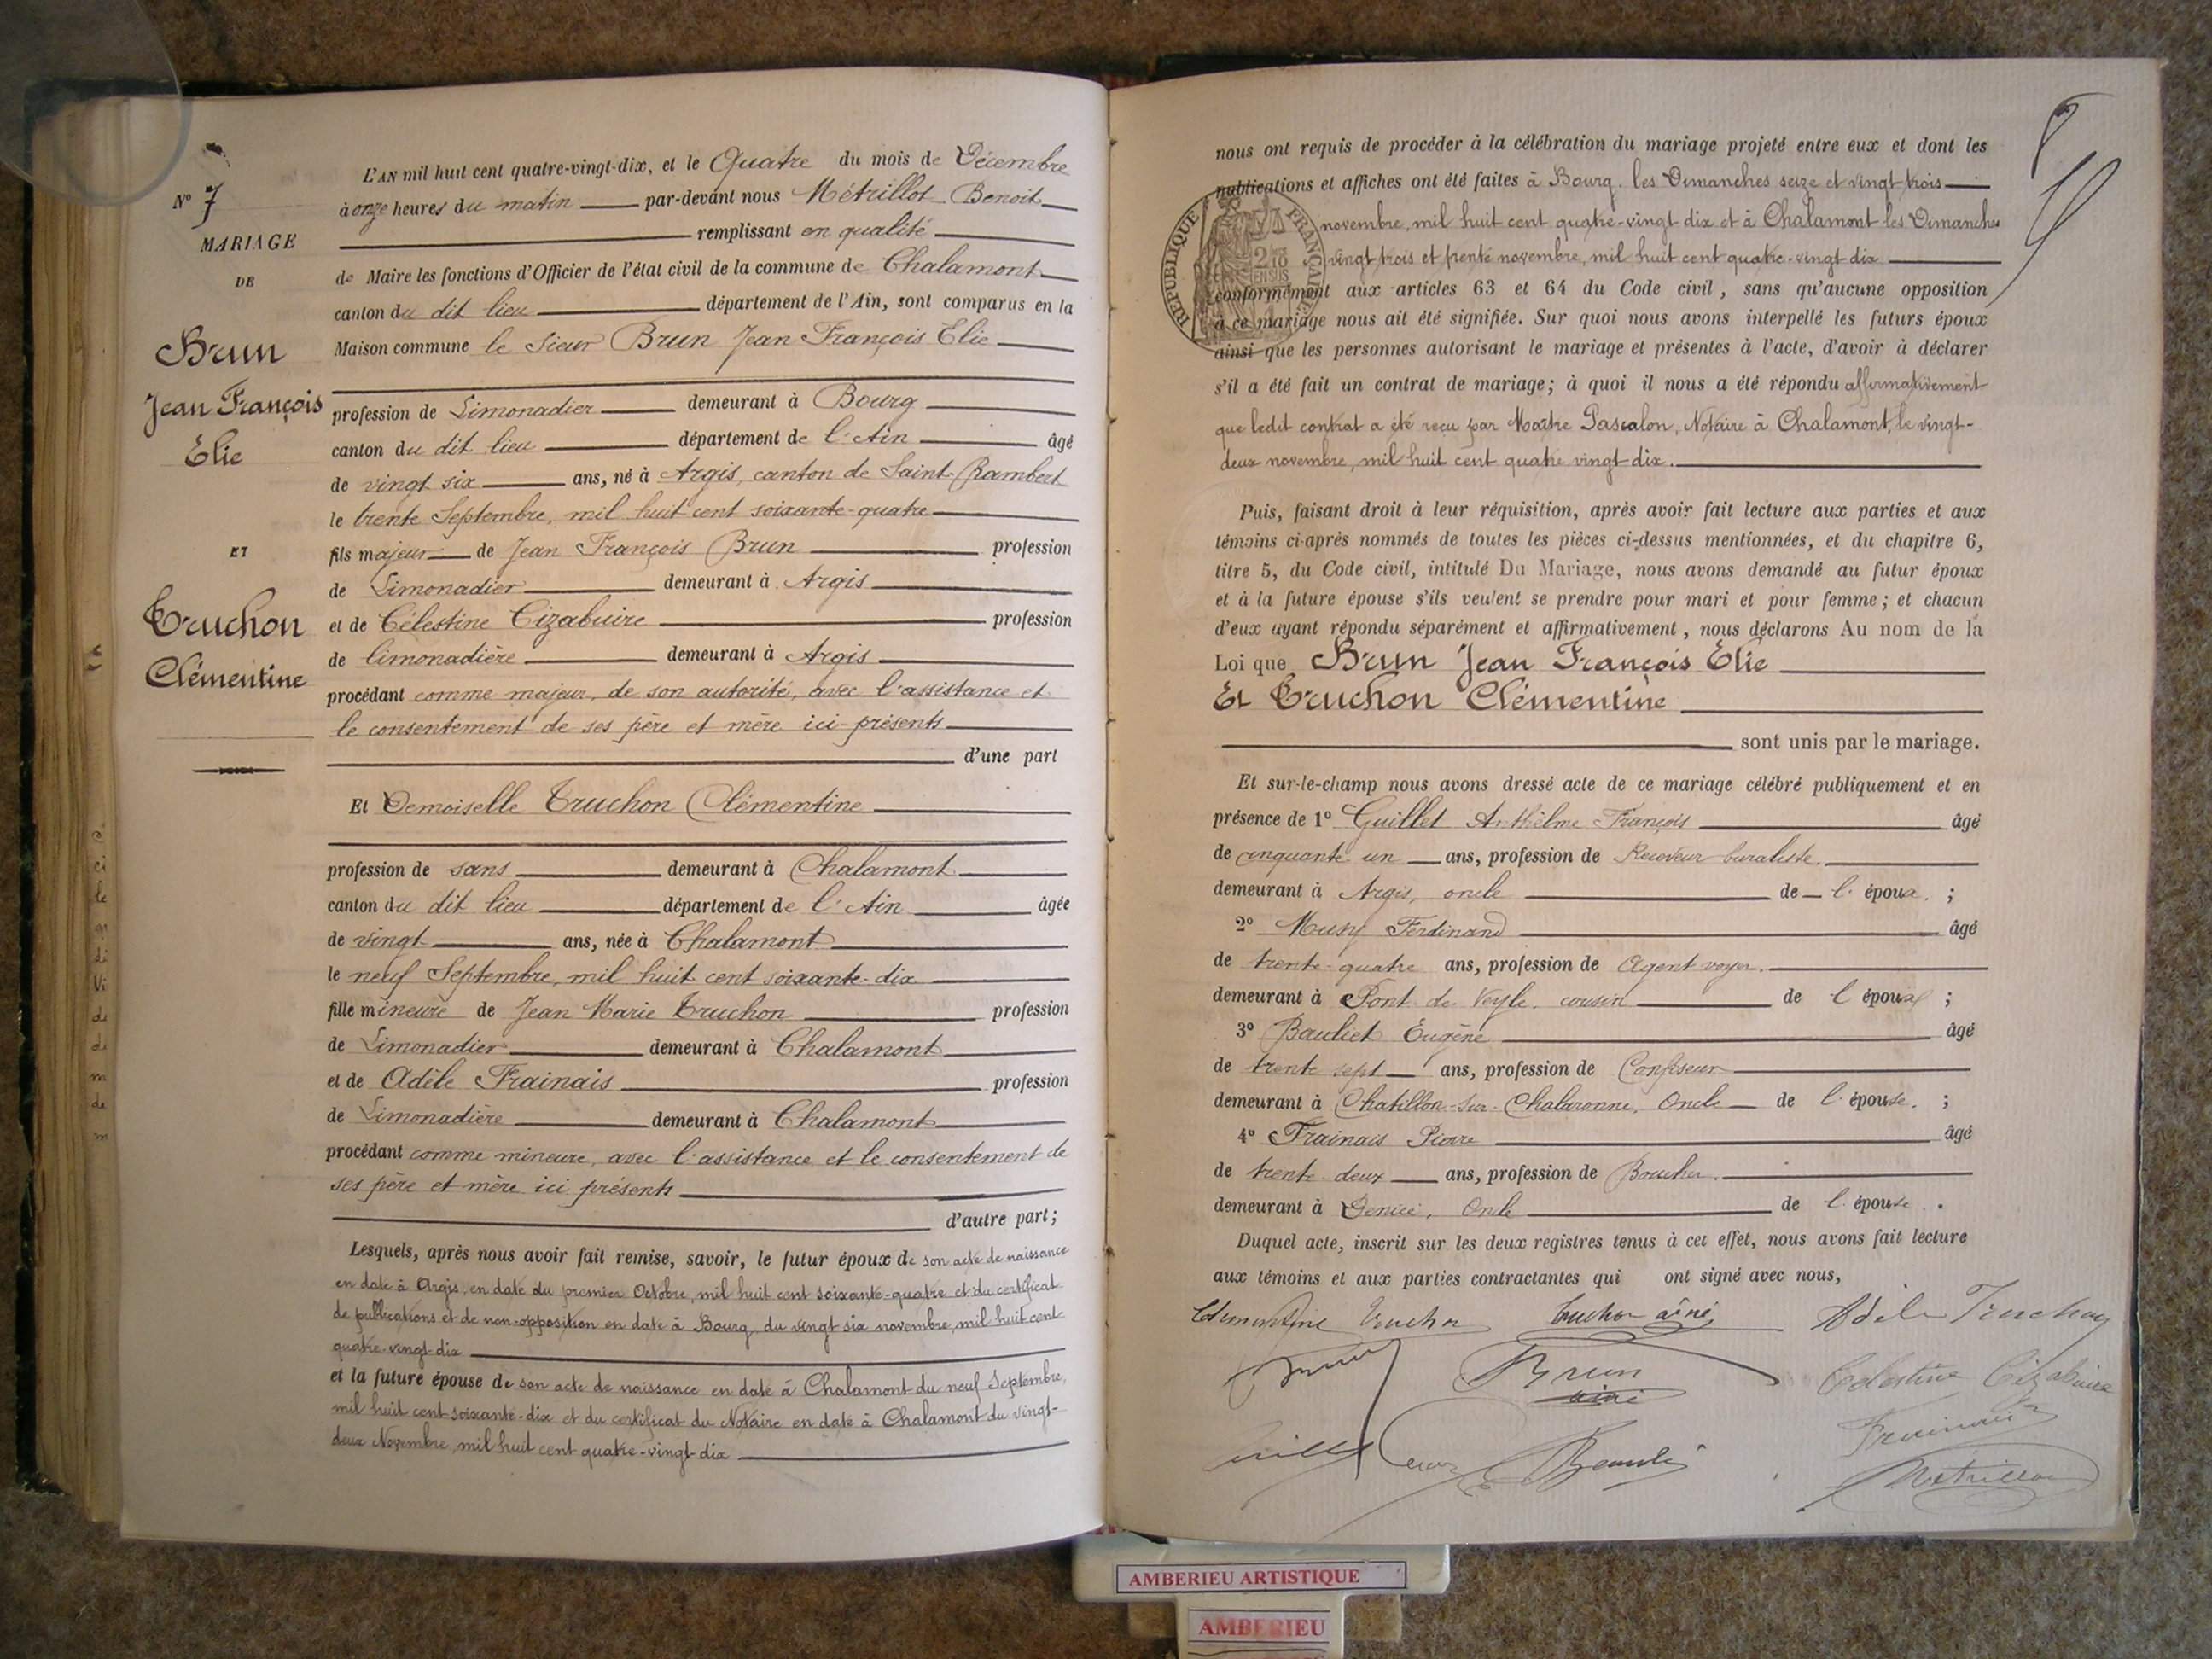 N° 7
MARIAGE
DE
Brun
Jean François
Elie
ET
Truchon
Clémentine
L'AN mil huit cent quatre-vingt-dix, et le Quatre du mois de Décembre
à onze heures du matin par-devant nous Métrillot Benoit
remplissant en qualité
de Maire les fonctions d'Officier de l'état civil de la commune de Chalamont
canton du dit lieu département de l'Ain, sont comparus en la
Maison commune le Sieur Brun Jean François Elie
profession de Limonadier demeurant à Bourg
canton du dit lieu département de l'Ain âgé
de vingt six ans, né à Argis, canton de Saint-Rambert
le trente Septembre, mil huit cent soixante-quatre
fils majeur de Jean François Brun profession
de Limonadier demeurant à Argis
et de Célestine Cizabuire profession
de limonadière demeurant à Argis
procédant comme majeur, de son autorité, avec l'assistance et
le consentement de ses père et mère ici présents
d'une part
Et Demoiselle Truchon Clémentine
profession de sans demeurant à Chalamont
canton du dit lieu département de l'Ain âgée
de vingt ans, née à Chalamont
le neuf Septembre, mil huit cent soixante-dix
fille mineure de Jean Marie Truchon profession
de Limonadier demeurant à Chalamont
et de Adèle Frainais profession
de Limonadière demeurant à Chalamont
procédant comme mineure, avec l'assistance et le consentement de
ses père et mère ici présents
d'autre part;
Lesquels, après nous avoir fait remise, savoir, le futur époux de son acte de naissance
en date à Argis, en date du premier Octobre, mil huit cent soixante-quatre et du certificat
de publications et de non-opposition en date à Bourg, du vingt six novembre, mil huit cent
quatre-vingt-dix
et la future épouse de son acte de naissance en date à Chalamont du neuf Septembre,
mil huit cent soixante-dix et du certificat du Notaire en date à Chalamont du vingt-
deux Novembre, mil huit cent quatre-vingt-dix
nous ont requis de procéder à la célébration du mariage projeté entre eux et dont les
publications et affiches ont été faites à Bourg. les Dimanches seize et vingt-trois
novembre, mil huit cent quatre-vingt dix et à Chalamont les Dimanches
vingt trois et trente novembre, mil huit cent quatre-vingt-dix
conformément aux articles 63 et 64 du Code civil, sans qu'aucune opposition
à ce mariage nous ait été signifiée. Sur quoi nous avons interpellé les futurs époux
ainsi que les personnes autorisant le mariage et présentes à l'acte, d'avoir à déclarer
s'il a été fait un contrat de mariage; à quoi il nous a été répondu affirmativement
que ledit contrat a été reçu par Maître Pascalon, Notaire à Chalamont, le vingt-
deux novembre, mil huit cent quatre vingt dix.
RÉPUBLIQUE FRANÇAISE
Puis, faisant droit à leur réquisition, après avoir fait lecture aux parties et aux
témoins ci-après nommés de toutes les pièces ci-dessus mentionnées, et du chapitre 6,
titre 5, du Code civil, intitulé Du Mariage, nous avons demandé au futur époux
et à la future épouse s'ils veulent se prendre pour mari et pour femme; et chacun
d'eux ayant répondu séparément et affirmativement, nous déclarons Au nom de la
Loi que Brun Jean François Elie
Et Truchon Clémentine
sont unis par le mariage.
Et sur-le-champ nous avons dressé acte de ce mariage célébré publiquement et en
présence de 1° Guillet Anthelme François âgé
de cinquante un ans, profession de Receveur buraliste.
demeurant à Argis, oncle de l'époux. ;
2° Musy Ferdinand âgé
de trente-quatre ans, profession de Agent voyer.
demeurant à Pont de Veyle. cousin de l'époux ;
3° Bauliet Eugène âgé
de trente sept ans, profession de Confiseur
demeurant à Chatillon-sur-Chalaronne, Oncle de l'épouse. ;
4° Frainais Pierre âgé
de trente deux ans, profession de Boucher.
demeurant à Oncle de l'épouse.
Duquel acte, inscrit sur les deux registres tenus à cet effet, nous avons fait lecture
aux témoins et aux parties contractantes qui ont signé avec nous,
Clémentine Truchon Truchon aîné Adèle Truchon
Brun Célestine Cizabuire
Frainais
Métrillot
AMBERIEU ARTISTIQUE
AMBERIEU